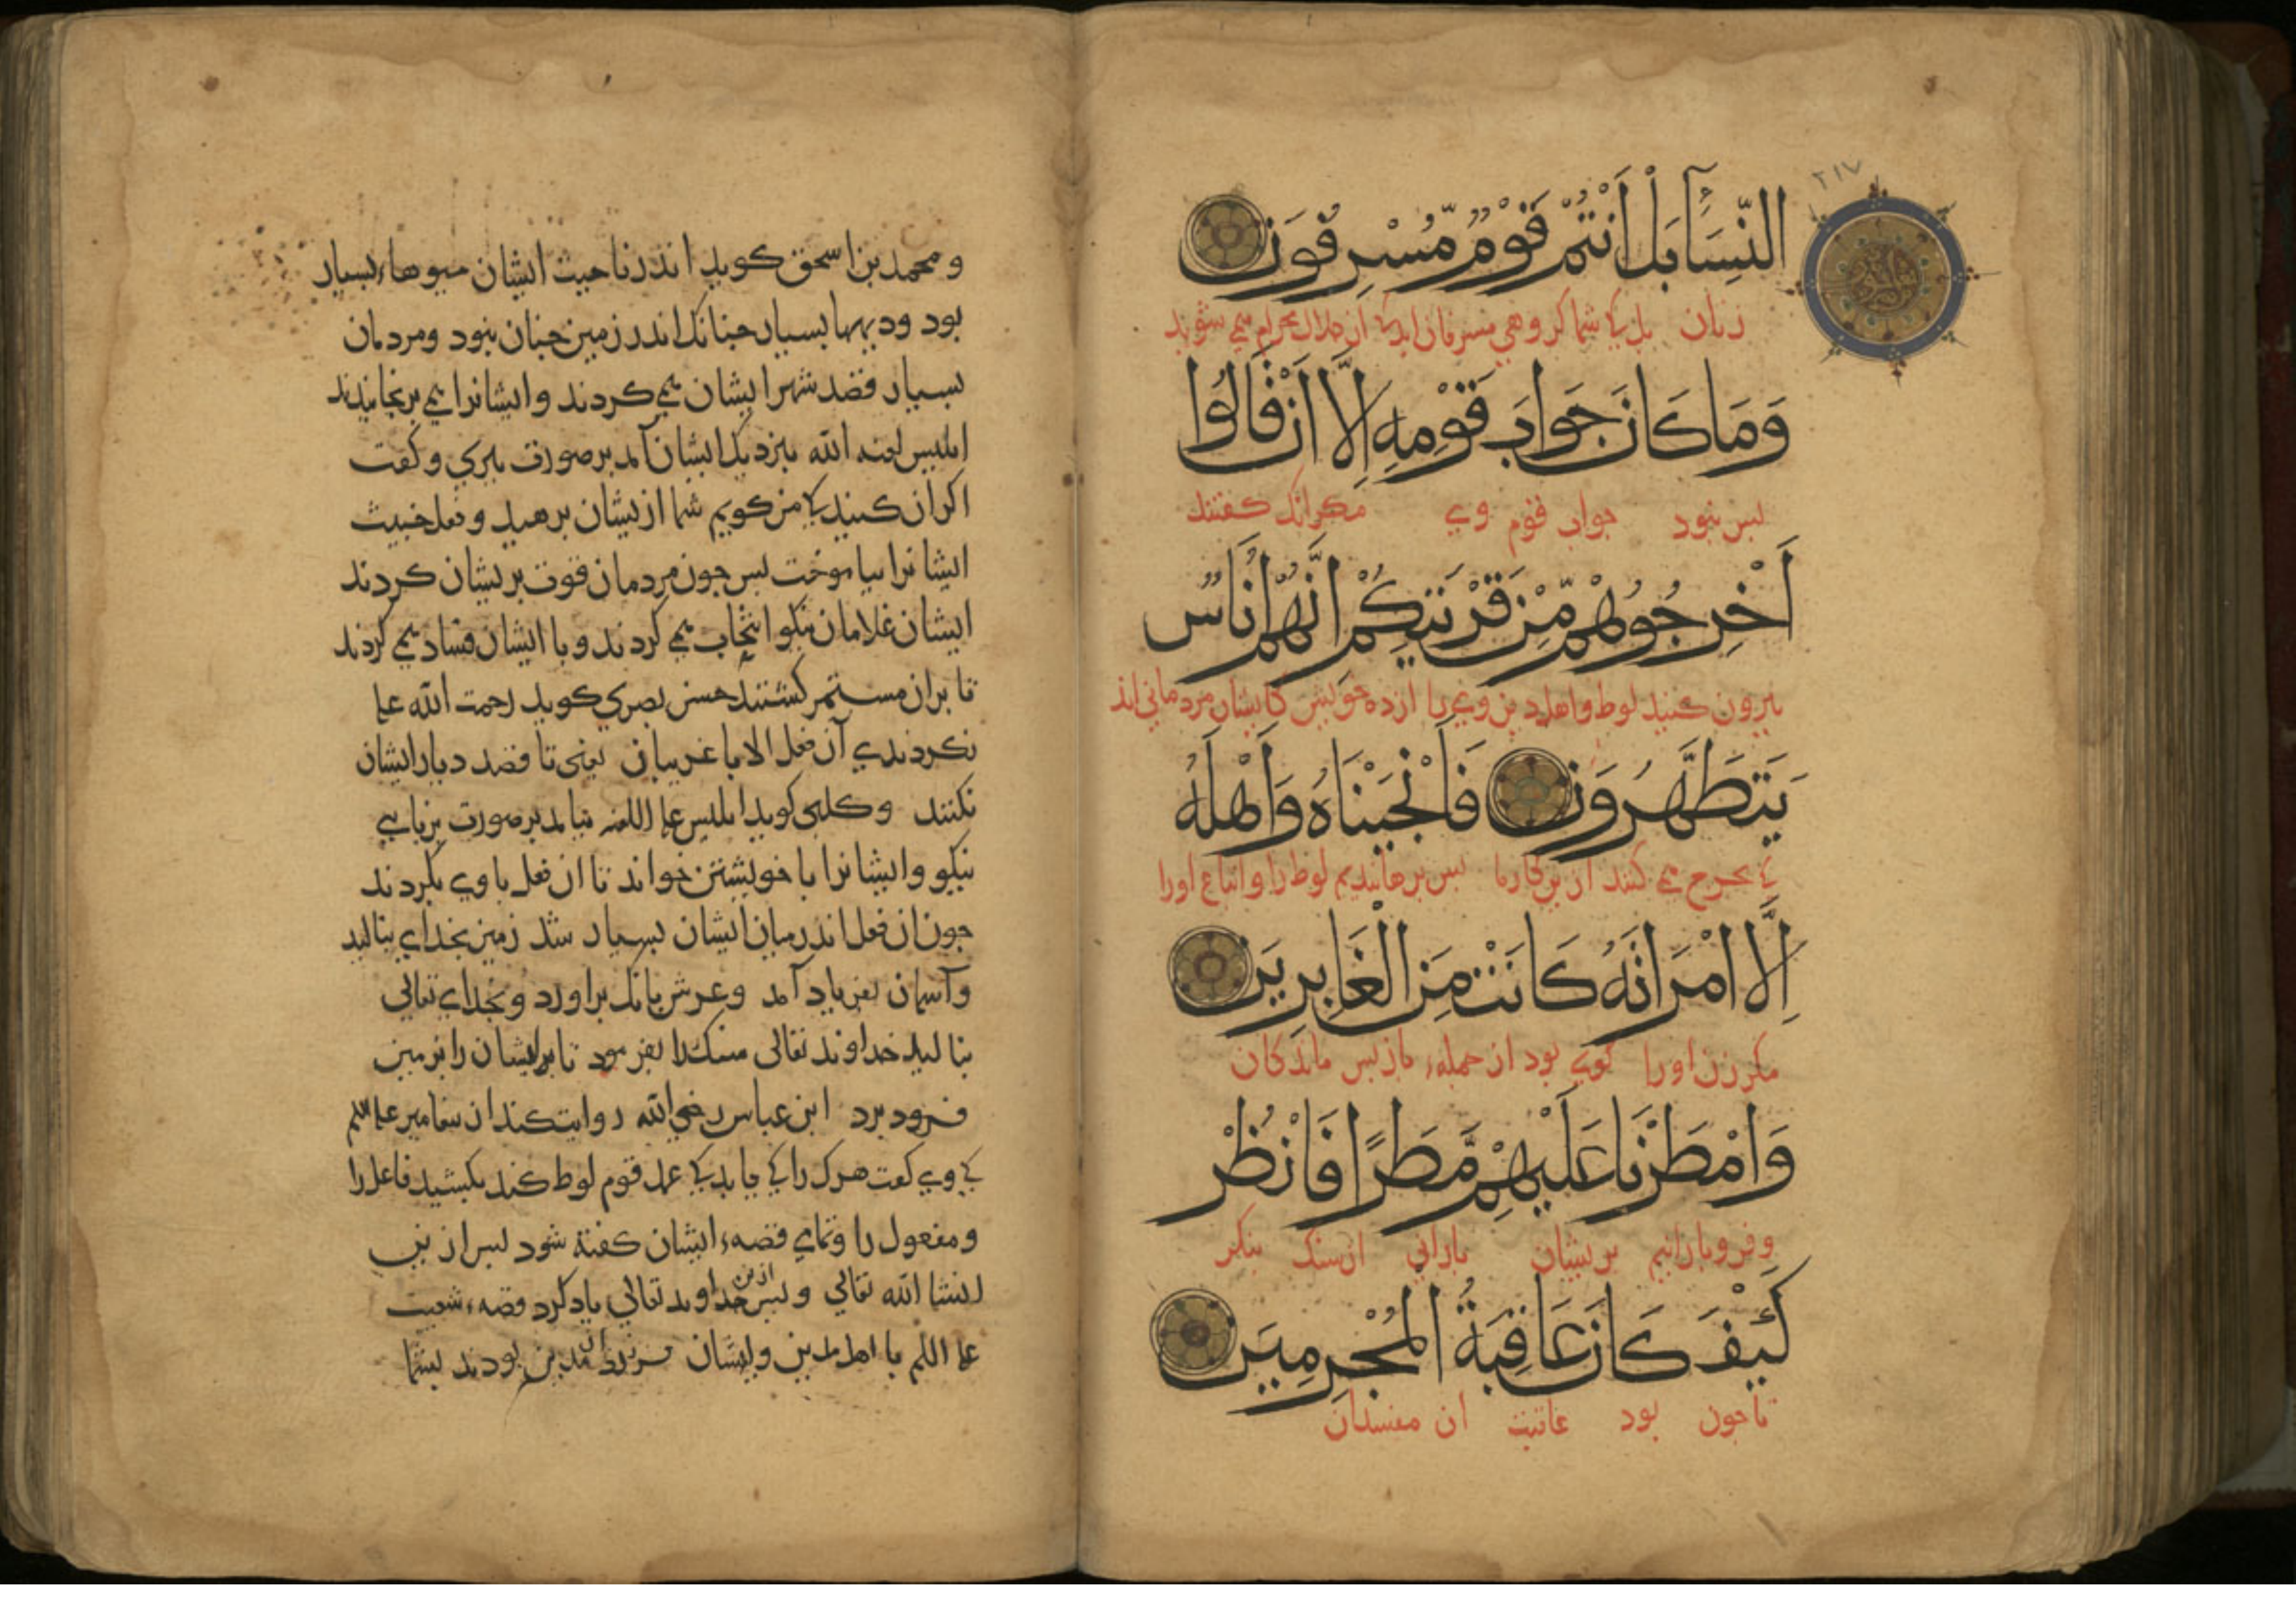 ٢١٧
النِّسَآءِ بَلْ أَنْتُمْ قَوْمٌ مُّسْرِفُونَ
زنان بل كه شما كروهي مسرفان ايد كه از حلال بحرام مي شويد
وَمَا كَانَ جَوَابَ قَوْمِهِ إِلَّا أَنْ قَالُوا
بس نبود جواب قوم وي مكر انك كفتند
أَخْرِجُوهُمْ مِّنْ قَرْيَتِكُمْ إِنَّهُمْ أُنَاسٌ
بيرون كنيد لوط و اهل دين ويرا از ده خويش كايشان مردماني اند
يَتَطَهَّرُونَ فَأَنْجَيْنَاهُ وَأَهْلَهُ
كه تحرج مي كنند ازين كارها بس برهانيديم لوط را و اتباع اورا
إِلَّا امْرَأَتَهُ كَانَتْ مِنَ الْغَابِرِينَ
مكر زن اورا كوي بود از جمله باز بس ماندكان
وَأَمْطَرْنَا عَلَيْهِمْ مَّطَرًا فَانْظُرْ
و فرو بارانيم بريشان باراني از سنك بنكر
كَيْفَ كَانَ عَاقِبَةُ الْمُجْرِمِينَ
تا جون بود عاقبت ان مفسدان
و محمد بن اسحق كويد اندر ناحيت ايشان ميوهاء بسيار
بود و ديهها بسيار جنانك اندر زمين جنان نبود و مردمان
بسيار قصد شهر ايشان مي كردند و ايشانرا مي برنجانيدند
ابليس لعنه الله بنزديك ايشان آمد بر صورت بيري و كفت
اكر ان كنيد كه من كويم شما ازيشان برهيد و فعل خبيث
ايشانرا بياموخت بس جون مردمان قوت بريشان كردند
ايشان غلامان نيكو انتخاب مي كردند و با ايشان فساد مي كردند
تا بران مستمر كشتند حسن بصري كويد رحمت الله عليه
نكردندي آن فعل الا با غريبان يعني تا قصد ديار ايشان
نكنند و كلبي كويد ابليس عليه اللعنه بيامد بر صورت برنايي
نيكو و ايشانرا با خويشتن خواند تا ان فعل با وي بكردند
جون ان فعل اندر ميان ايشان بسيار شد زمين بخداي بناليد
و آسمان بفرياد آمد و عرش بانك براورد و بخداي تعالى
بناليد خداوند تعالى سنك را بفرمود تا ايشان را بزمين
فرود برد ابن عباس رضي الله روايت كند از بيغامبر عليه السلم
كه وي كفت هرك را كه يابيد كه عمل قوم لوط كند بكشيد فاعل را
و مفعول را و تماي قصه ايشان كفته شود بس ازين
انشا الله تعالي و بس ازين خداوند تعالي ياد كرد قصه شعيب
عليه السلم با اهل مدين و ايشان فرزندان مدين بودند